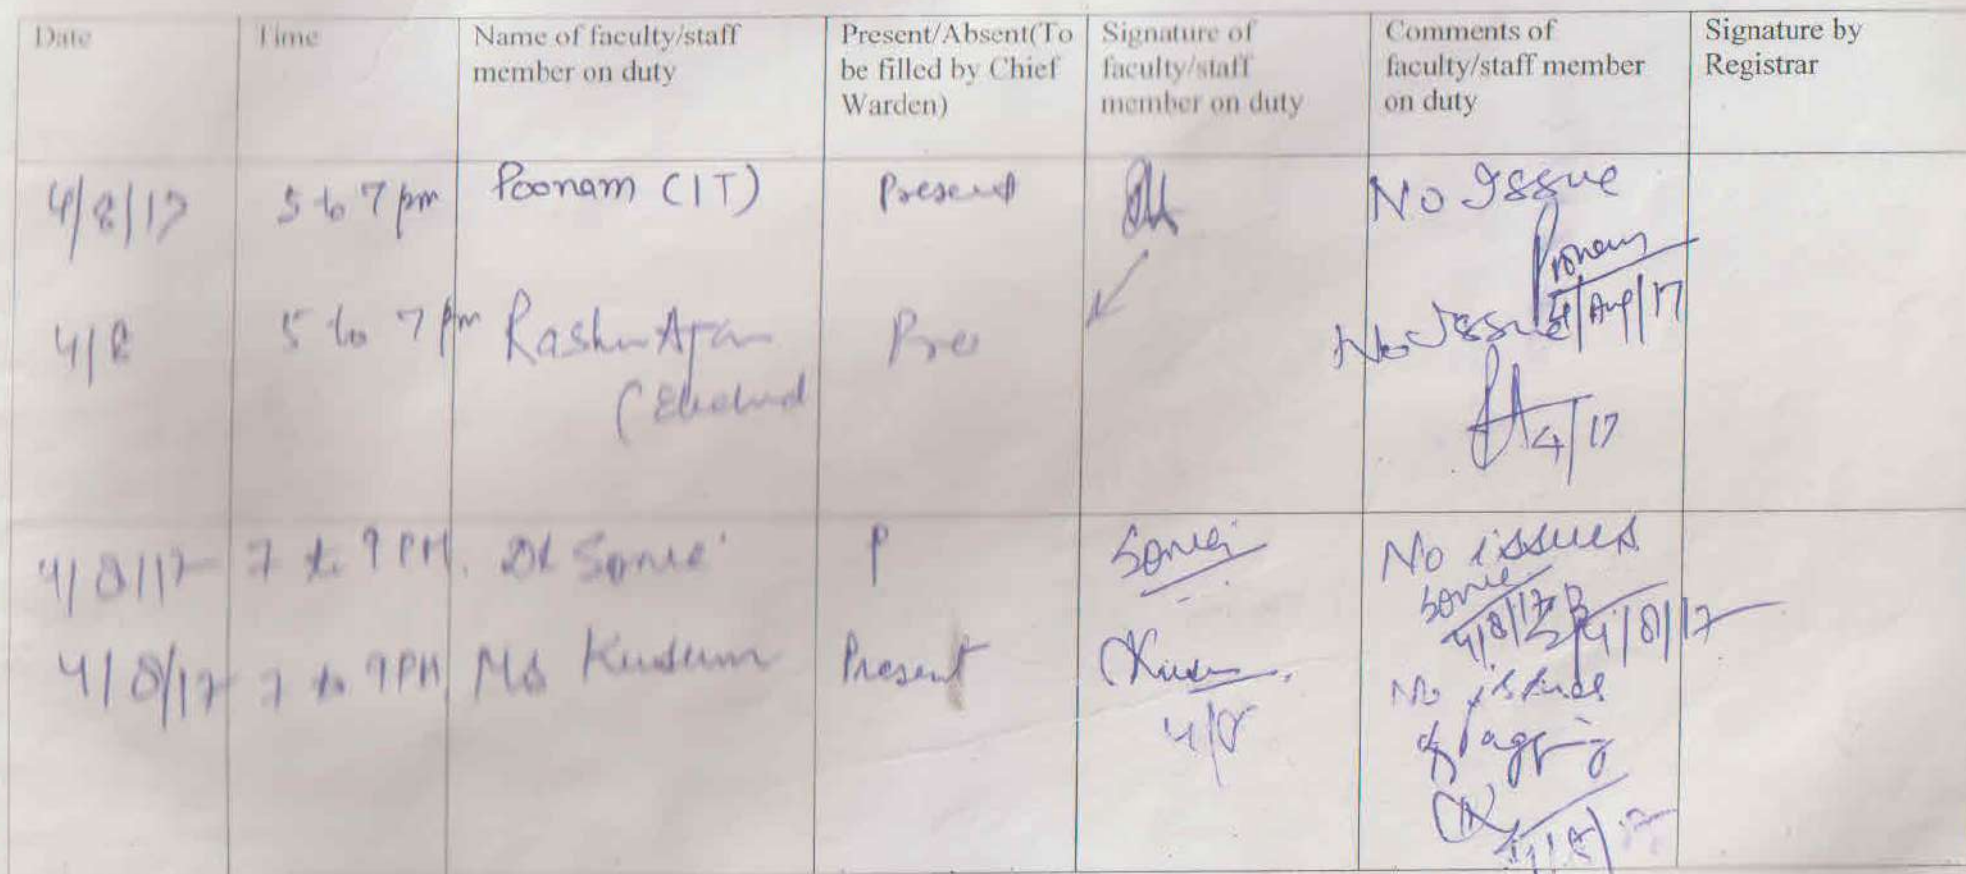 Date Time Name of faculty/staff member on duty Present/Absent(To be filled by Chief Warden) Signature of faculty/staff member on duty Comments of faculty/staff member on duty Signature by Registrar
4/8/17 5 to 7 pm Poonam (IT) Present No Issue
Poonam
4/Aug/17
4/8 5 to 7 pm Pre No Issue
4/17
4/8/17 7 to 9 PM. Dr Sonia P Sonia No issues
Sonia
4/8/17 4/8/17
4/8/17 7 to 9 PM Ms Kusum Present Kusum No issues
4/8 of ragging